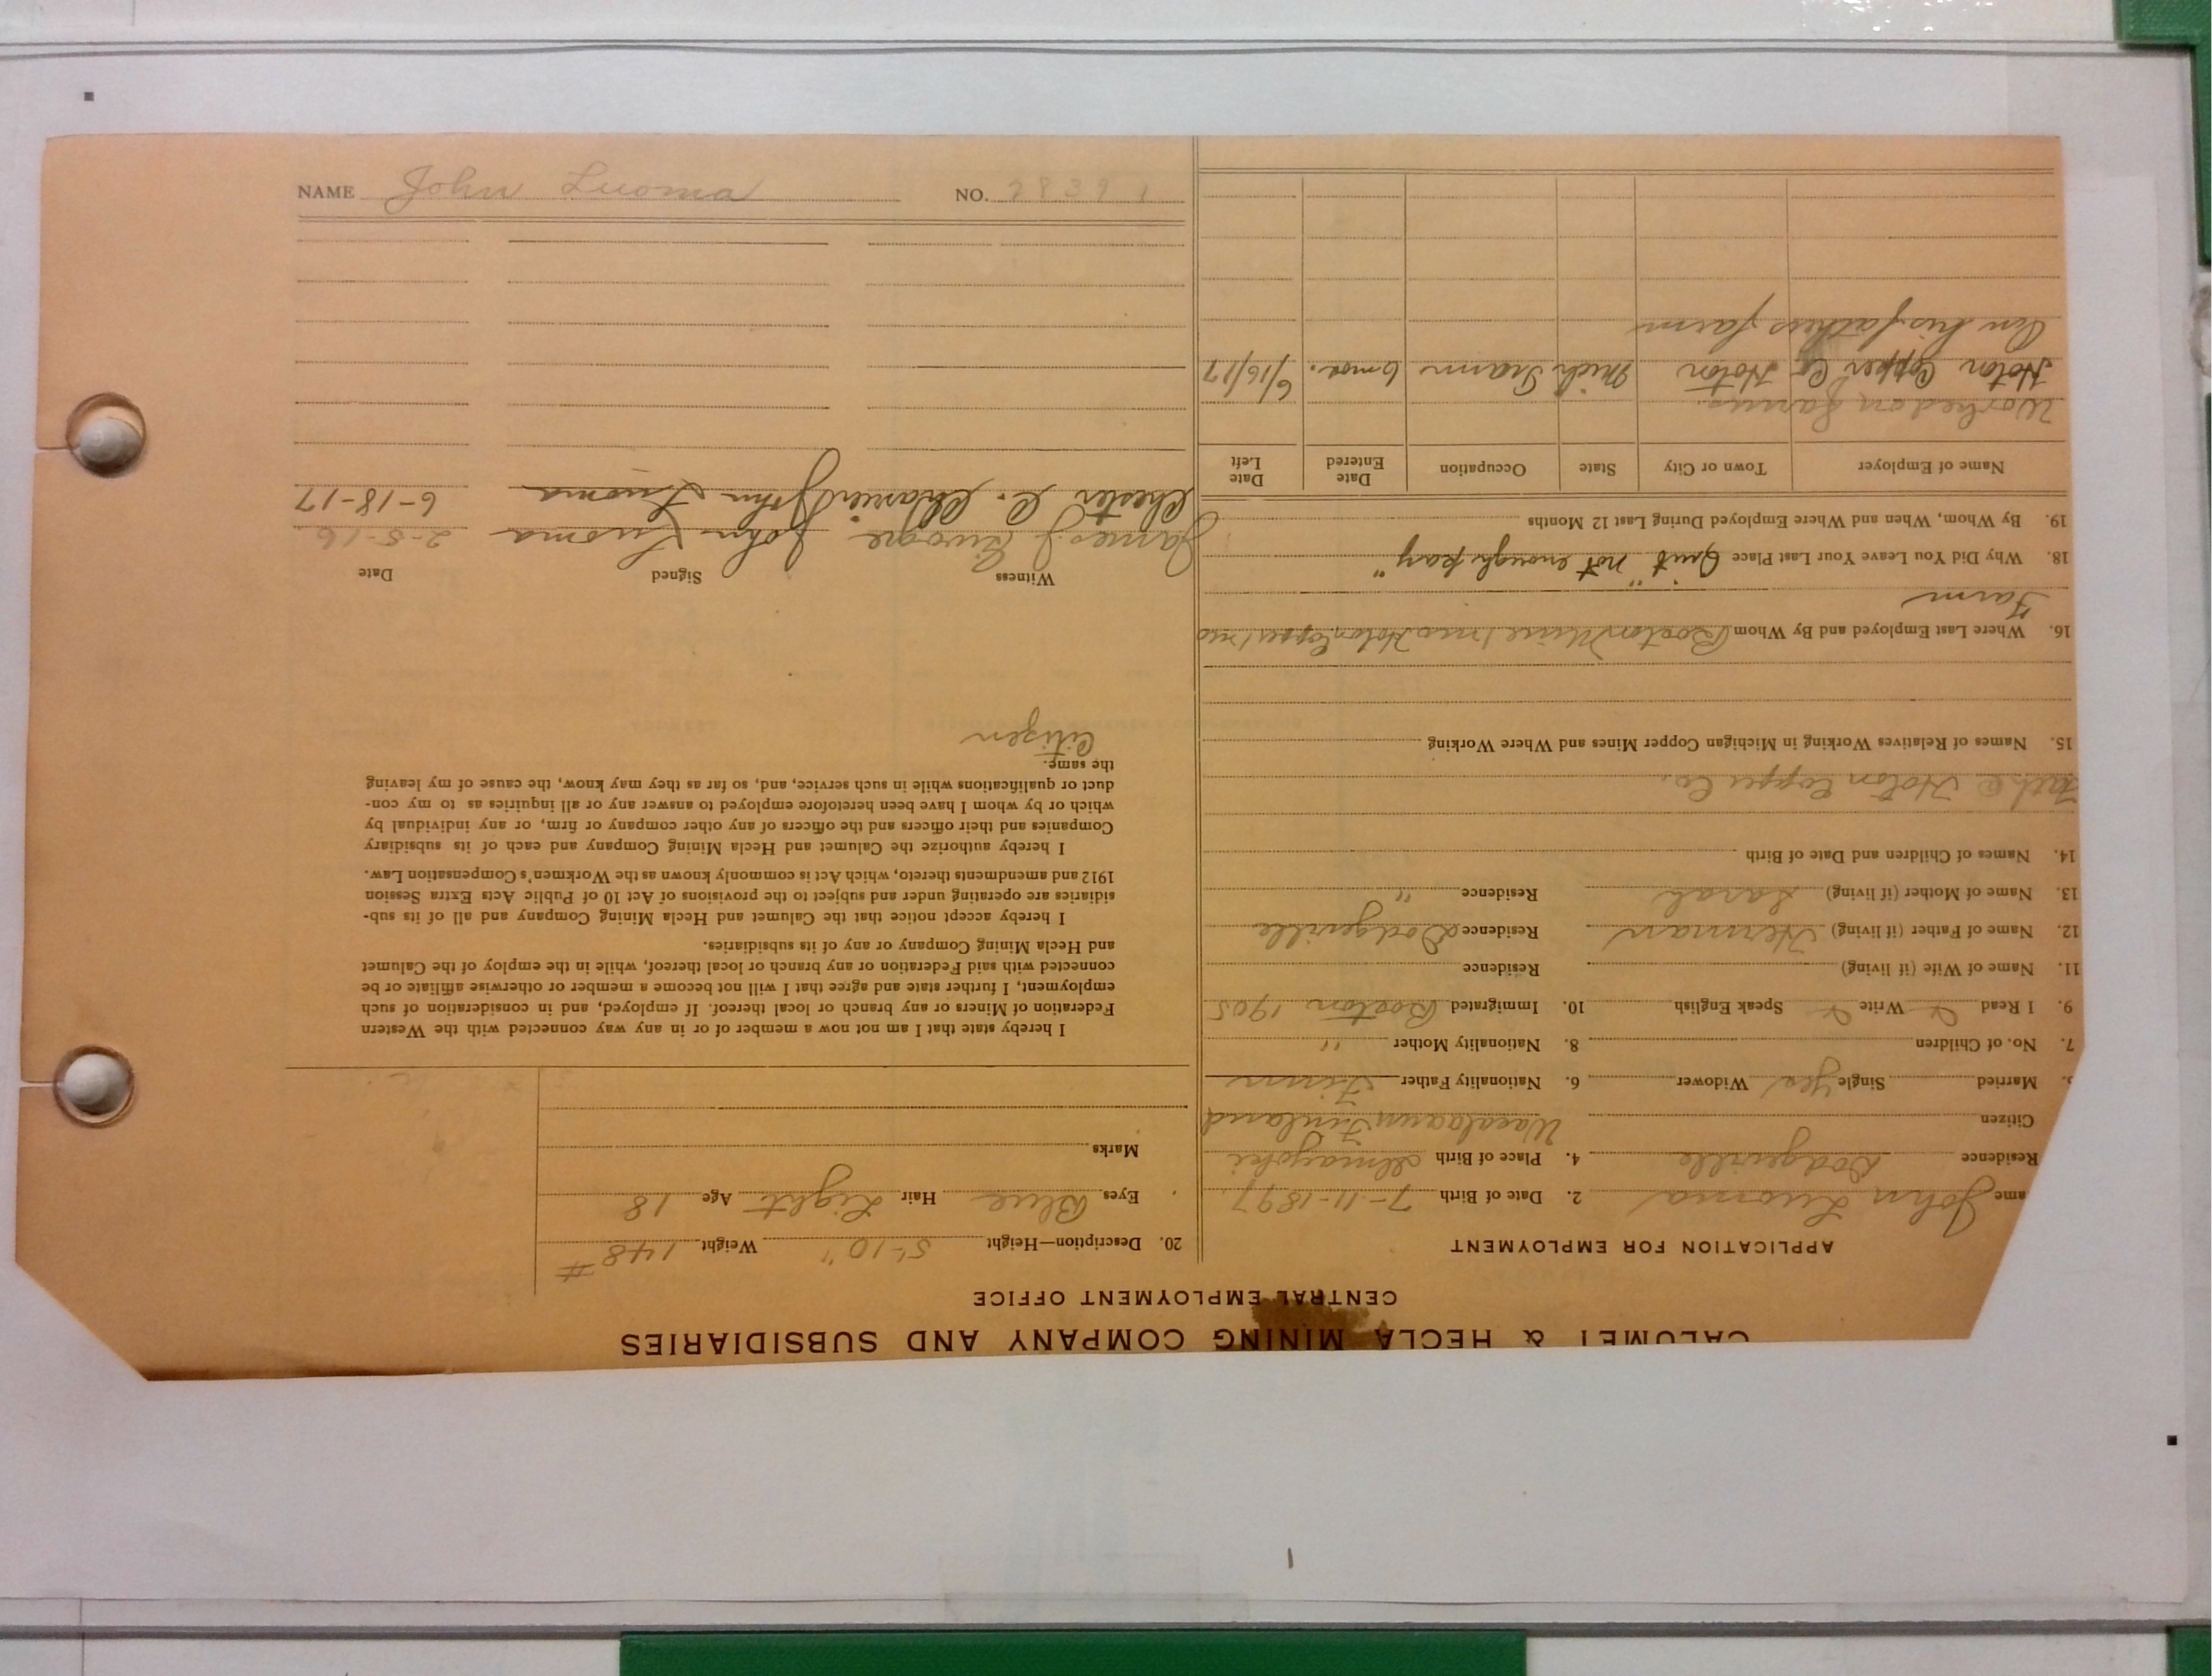 CALUMET & HECLA MINING COMPANY AND SUBSIDIARIES
CENTRAL EMPLOYMENT OFFICE
APPLICATION FOR EMPLOYMENT
ame John Luoma 2. Date of Birth 7-11-1897
Residence Dodgeville 4. Place of Birth
Citizen Finland
Married Single Yes Widower 6. Nationality Father Finn
7. No. of Children 8. Nationality Mother "
9. I Read Write Speak English 10. Immigrated Boston 1905
11. Name of Wife (if living) Residence
12. Name of Father (if living) Herman Residence Dodgeville
13. Name of Mother (if living) Sarah Residence "
14. Names of Children and Date of Birth
Hoton Copper Co.
15. Names of Relatives Working in Michigan Copper Mines and Where Working
16. Where Last Employed and By Whom Boston Mine 1 mo Hoton Copper 1 mo
Farm
18. Why Did You Leave Your Last Place Quit "not enough pay"
19. By Whom, When and Where Employed During Last 12 Months
Name of Employer Town or City State Occupation Date Entered Date Left
Worked on farms.
Hoton Copper Co Hoton Mich Tram 6 mos. 6/16/17
On his fathers farm
20. Description—Height 5'-10" Weight 148 #
Eyes Blue Hair Light Age 18
Marks
I hereby state that I am not now a member of or in any way connected with the Western
Federation of Miners or any branch or local thereof. If employed, and in consideration of such
employment, I further state and agree that I will not become a member or otherwise affiliate or be
connected with said Federation or any branch or local thereof, while in the employ of the Calumet
and Hecla Mining Company or any of its subsidiaries.
I hereby accept notice that the Calumet and Hecla Mining Company and all of its sub-
sidiaries are operating under and subject to the provisions of Act 10 of Public Acts Extra Session
1912 and amendments thereto, which Act is commonly known as the Workmen's Compensation Law.
I hereby authorize the Calumet and Hecla Mining Company and each of its subsidiary
Companies and their officers and the officers of any other company or firm, or any individual by
which or by whom I have been heretofore employed to answer any or all inquiries as to my con-
duct or qualifications while in such service, and, so far as they may know, the cause of my leaving
the same.
Citizen
Witness Signed Date
James J. John Luoma 2-5-16
Chester C. John Luoma 6-18-17
NAME John Luoma NO. 28391